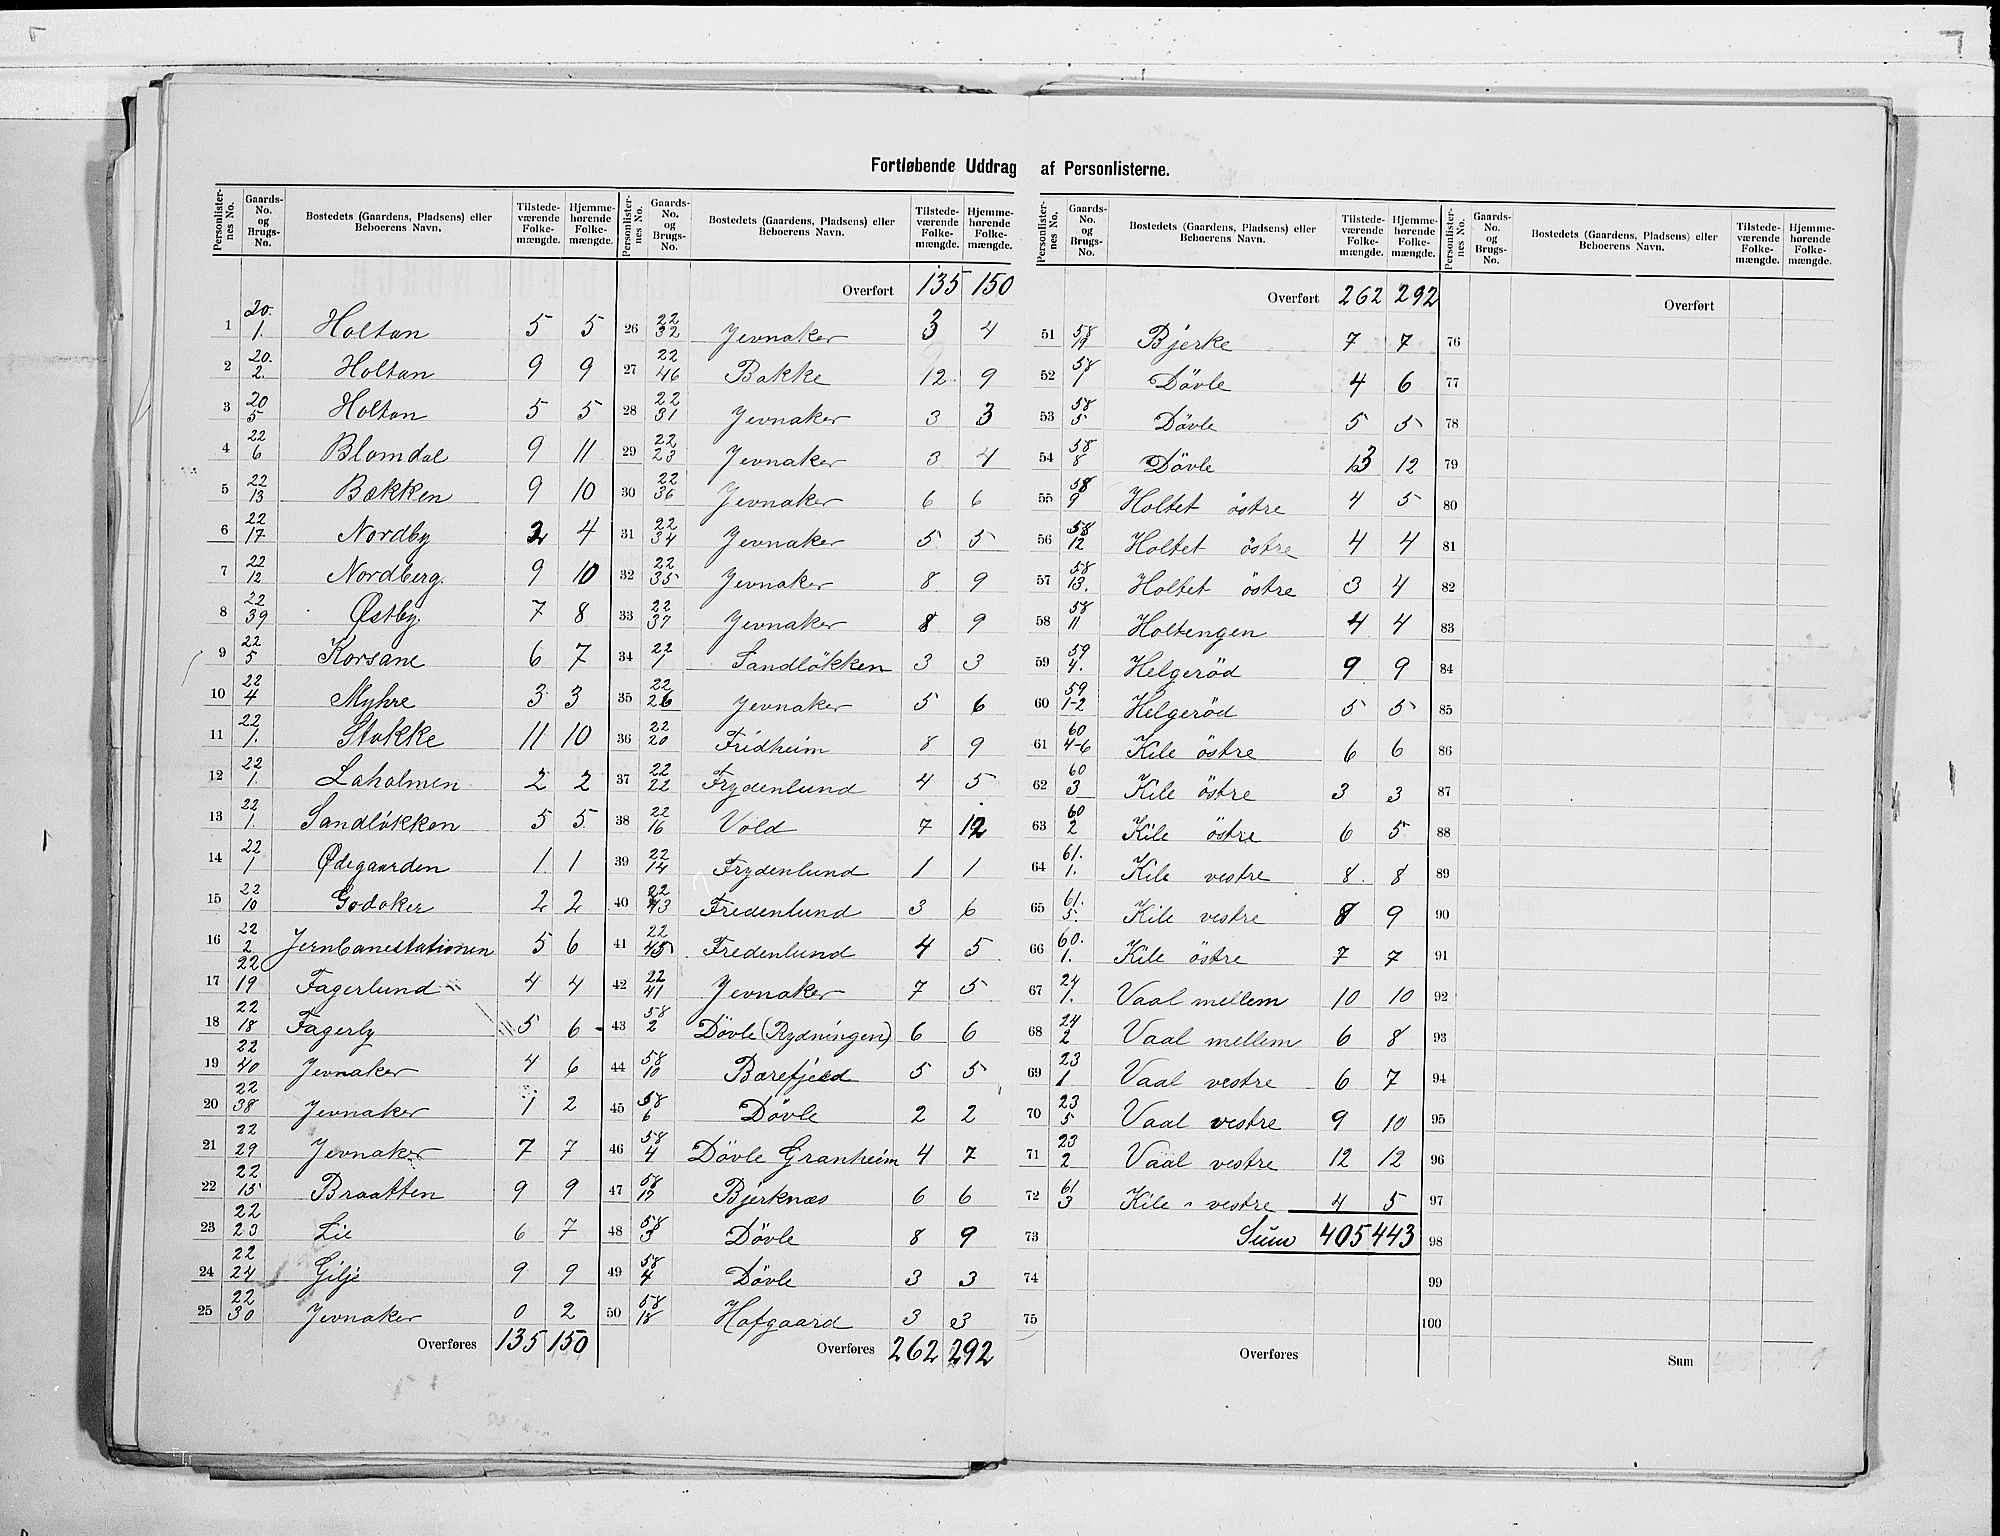 Fortløbende Uddrag af Personlisterne.
Personlister- nes No. Gaards- No. og Brugs- No. Bostedets (Gaardens, Pladsens) eller Beboerens Navn. Tilstede- værende Folke- mængde. Hjemme- hørende Folke- mængde.
1 20. 1. Holtan 5 5
2 20. 2. Holtan 9 9
3 20 5 Holtan 5 5
4 22 6 Blomdal 9 11
5 22 13 Bækken 9 10
6 22 17 Nordby 2 4
7 22 12 Nordberg. 9 10
8 22 39 Østby. 7 8
9 22 5 Korsane 6 7
10 22 4 Myhre 3 3
11 22 1. Stokke 11 10
12 22 1. Laholmen 2 2
13 22 1. Sandløkken 5 5
14 22 1 Ødegaarden 1 1
15 22 10 Godaker 2 2
16 22 2 Jernbanestationen 5 6
17 22 19 Fagerlund 4 4
18 22 18 Fagerly 5 6
19 22 40 Jevnaker 4 6
20 22 38 Jevnaker 1 2
21 22 29 Jevnaker 7 7
22 22 15 Braatten 9 9
23 22 23 Lie 6 7
24 22 24 Gilje 9 9
25 22 30 Jevnaker 0 2
Overføres 135 150
Personlister- nes No. Gaards- No. og Brugs- No. Bostedets (Gaardens, Pladsens) eller Beboerens Navn. Tilstede- værende Folke- mængde. Hjemme- hørende Folke- mængde.
Overført 135 150
26 22 32 Jevnaker 3 4
27 22 46 Bakke 12 9
28 22 31 Jevnaker 3 3
29 22 23 Jevnaker 3 4
30 22 36 Jevnaker 6 6
31 22 34 Jevnaker 5 5
32 22 35 Jevnaker 8 9
33 22 37 Jevnaker 8 9
34 22 1 Sandløkken 3 3
35 22 26 Jevnaker 5 6
36 22 20 Fridheim 8 9
37 22 22 Frydenlund 4 5
38 22 16 Vold 7 12
39 22 14 Frydenlund 1 1
40 22 43 Fredenlund 3 6
41 22 45 Fredenlund 4 5
42 22 41 Jevnaker 7 5
43 58 2 Dövle (Rydningen) 6 6
44 58 10 Barefjeld 5 5
45 58 6 Dövle 2 2
46 58 4 Dövle Granheim 4 7
47 58 17 Bjerknæs 6 6
48 58 3 Dövle 8 9
49 58 4 Dövle 3 3
50 58 18 Hofgaard 3 3
Overføres 262 292
Personlister- nes No. Gaards- No. og Brugs- No. Bostedets (Gaardens, Pladsens) eller Beboerens Navn. Tilstede- værende Folke- mængde. Hjemme- hørende Folke- mængde.
Overført 262 292
51 58 19 Bjerke 7 7
52 58 1 Dövle 4 6
53 58 5 Dövle 5 5
54 58 8 Dövle 13 12
55 58 9 Holtet östre 4 5
56 58 12 Holtet östre 4 4
57 58 13. Holtet östre 3 4
58 58 11 Holtengen 4 4
59 59 4. Helgeröd 9 9
60 59 1-2 Helgeröd 5 5
61 60 4-6 Kile östre 6 6
62 60 3 Kile östre 3 3
63 60 2 Kile östre 6 5
64 61. 1. Kile vestre 8 8
65 61. 5. Kile vestre 8 9
66 60. 1. Kile östre 7 7
67 24 1. Vaal mellem 10 10
68 24 2 Vaal mellem 6 8
69 23 1 Vaal vestre 6 7
70 23 5 Vaal vestre 9 10
71 23 2 Vaal vestre 12 12
72 61 3 Kile vestre 4 5
73 Sum 405 443
74
75
Overføres
Personlister- nes No. Gaards- No. og Brugs- No. Bostedets (Gaardens, Pladsens) eller Beboerens Navn. Tilstede- værende Folke- mængde. Hjemme- hørende Folke- mængde.
Overført
76
77
78
79
80
81
82
83
84
85
86
87
88
89
90
91
92
93
94
95
96
97
98
99
100
Sum